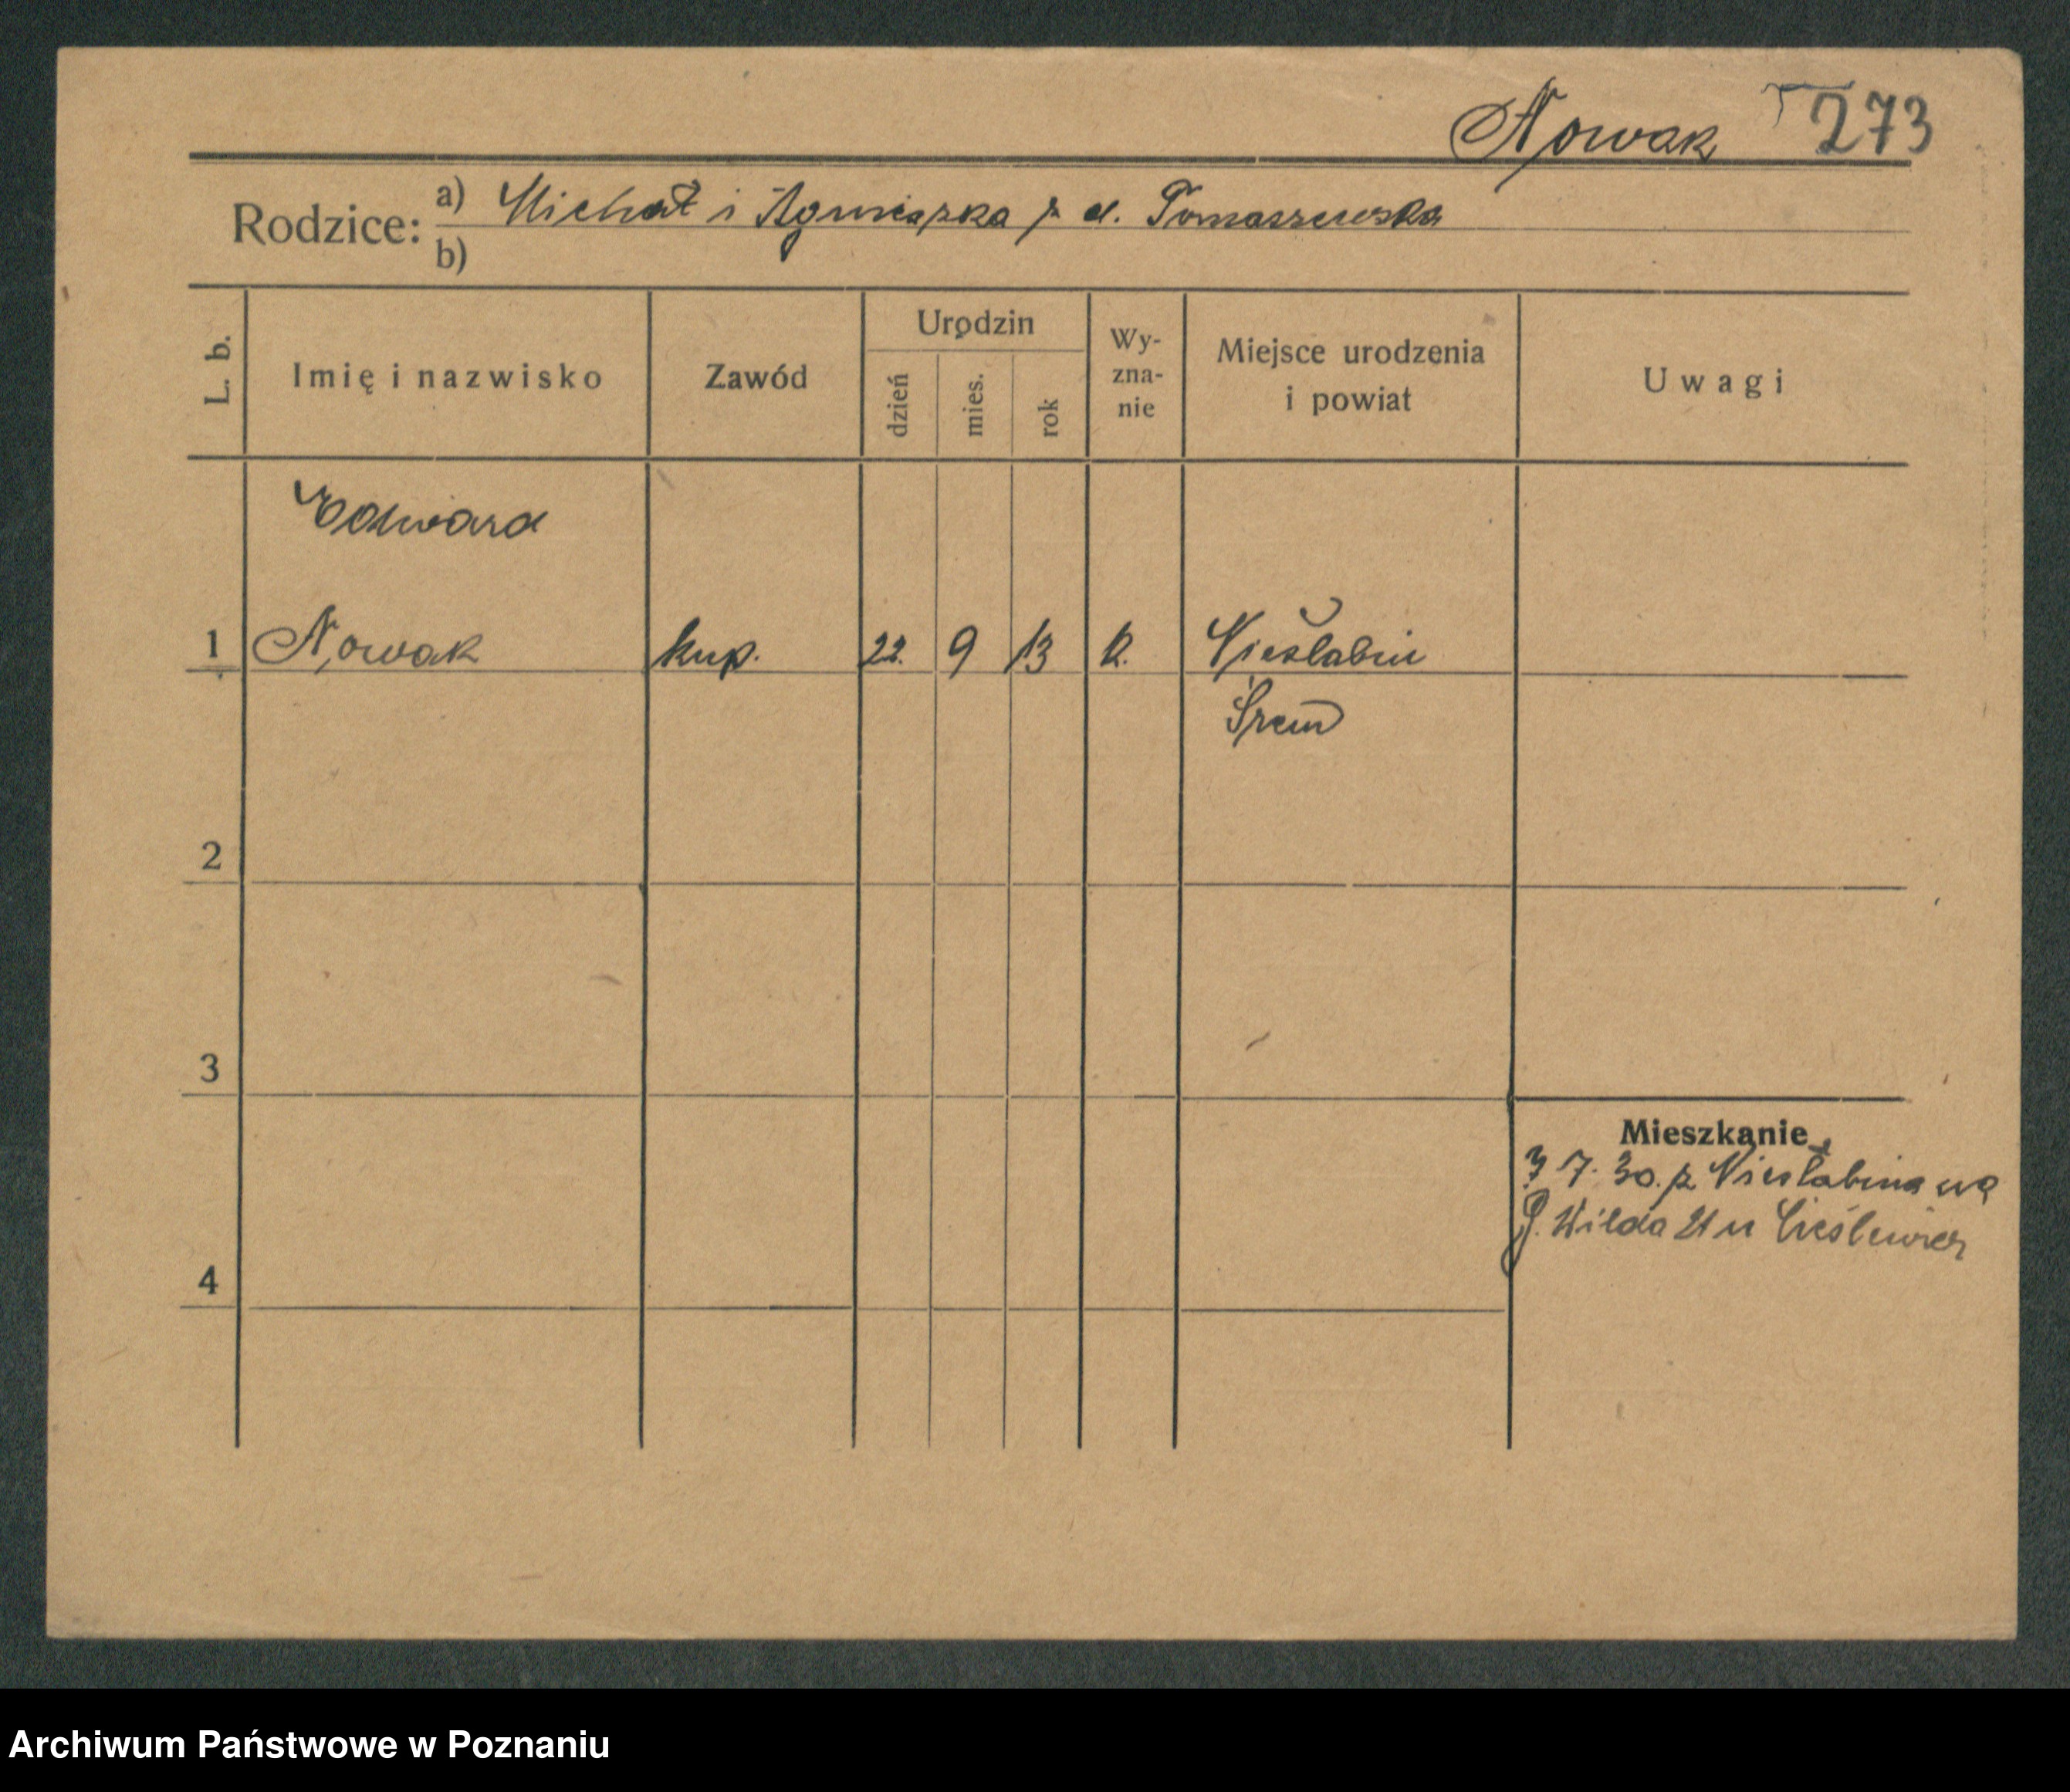 Nowak 273
Rodzice: a) Michał i Agnieszka z d. Tomaszewska
b)
L. b. Imię i nazwisko Zawód Urodzin dzień mies. rok Wy-zna-nie Miejsce urodzenia i powiat Uwagi
Edward
1 Nowak kup. 22. 9 13 k. Niesłabin
Śrem
2
3
Mieszkanie
3 7. 30. z Niesłabina na
G. Wilda 21 u Cieślewicz
4
Archiwum Państwowe w Poznaniu